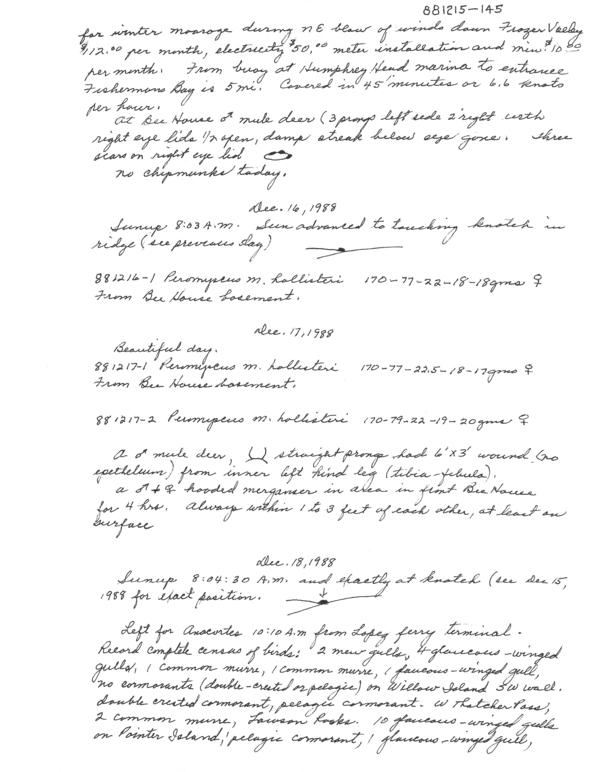 881215-145
for winter moorage during NE blow of winds down Frazer Valley
$12.00 per month, electricity $50.00 meter installation and min. $10.00
per month. From buoy at Humphrey Head marina to entrance
Fishermons Bay is 5 mi. Covered in 45 minutes or 6.6 knots
per hour.
At Bee House ♂ mule deer (3 prongs left side 2 right with
right eye lids 1/2 open, damp streak below eye gone. Three
scars on right eye lid
no chipmunks today.
Dec. 16, 1988
Sunup 8:03 A.M. Sun advanced to touching knotch in
ridge (see previous day)
881216-1 Peromyscus m. hollisteri 170-77-22-18-18gms ♀
From Bee House basement.
Dec. 17, 1988
Beautiful day.
881217-1 Peromyscus m. hollisteri 170-77-22.5-18-17gms ♀
From Bee House basement.
881217-2 Peromyscus m. hollisteri 170-79-22-19-20gms ♀
A ♂ mule deer, straight prongs had 6'x3' wound (no
epethelium) from inner left hind leg (tibia-fibula).
a ♂ + ♀ hooded merganser in area in front Bee House
for 4 hrs. Always within 1 to 3 feet of each other, at least on
surface
Dec. 18, 1988
Sunup 8:04:30 A.M. and exactly at knotch (see Dec 15,
1988 for exact position.
Left for Anacortes 10:10 A.M from Lopez ferry terminal.
Record complete census of birds: 2 mew gulls, 4 glaucous-winged
gulls, 1 common murre, 1 common murre, 1 glaucous-winged gull,
no cormorants (double-crested or pelagic) on Willow Island SW wall.
double crested cormorant, pelagic cormorant. W Thatcher Pass,
2 common murre, Lawson Rocks. 10 glaucous-winged gulls
on Pointer Island, 1 pelagic cormorant, 1 glaucous-winged gull,